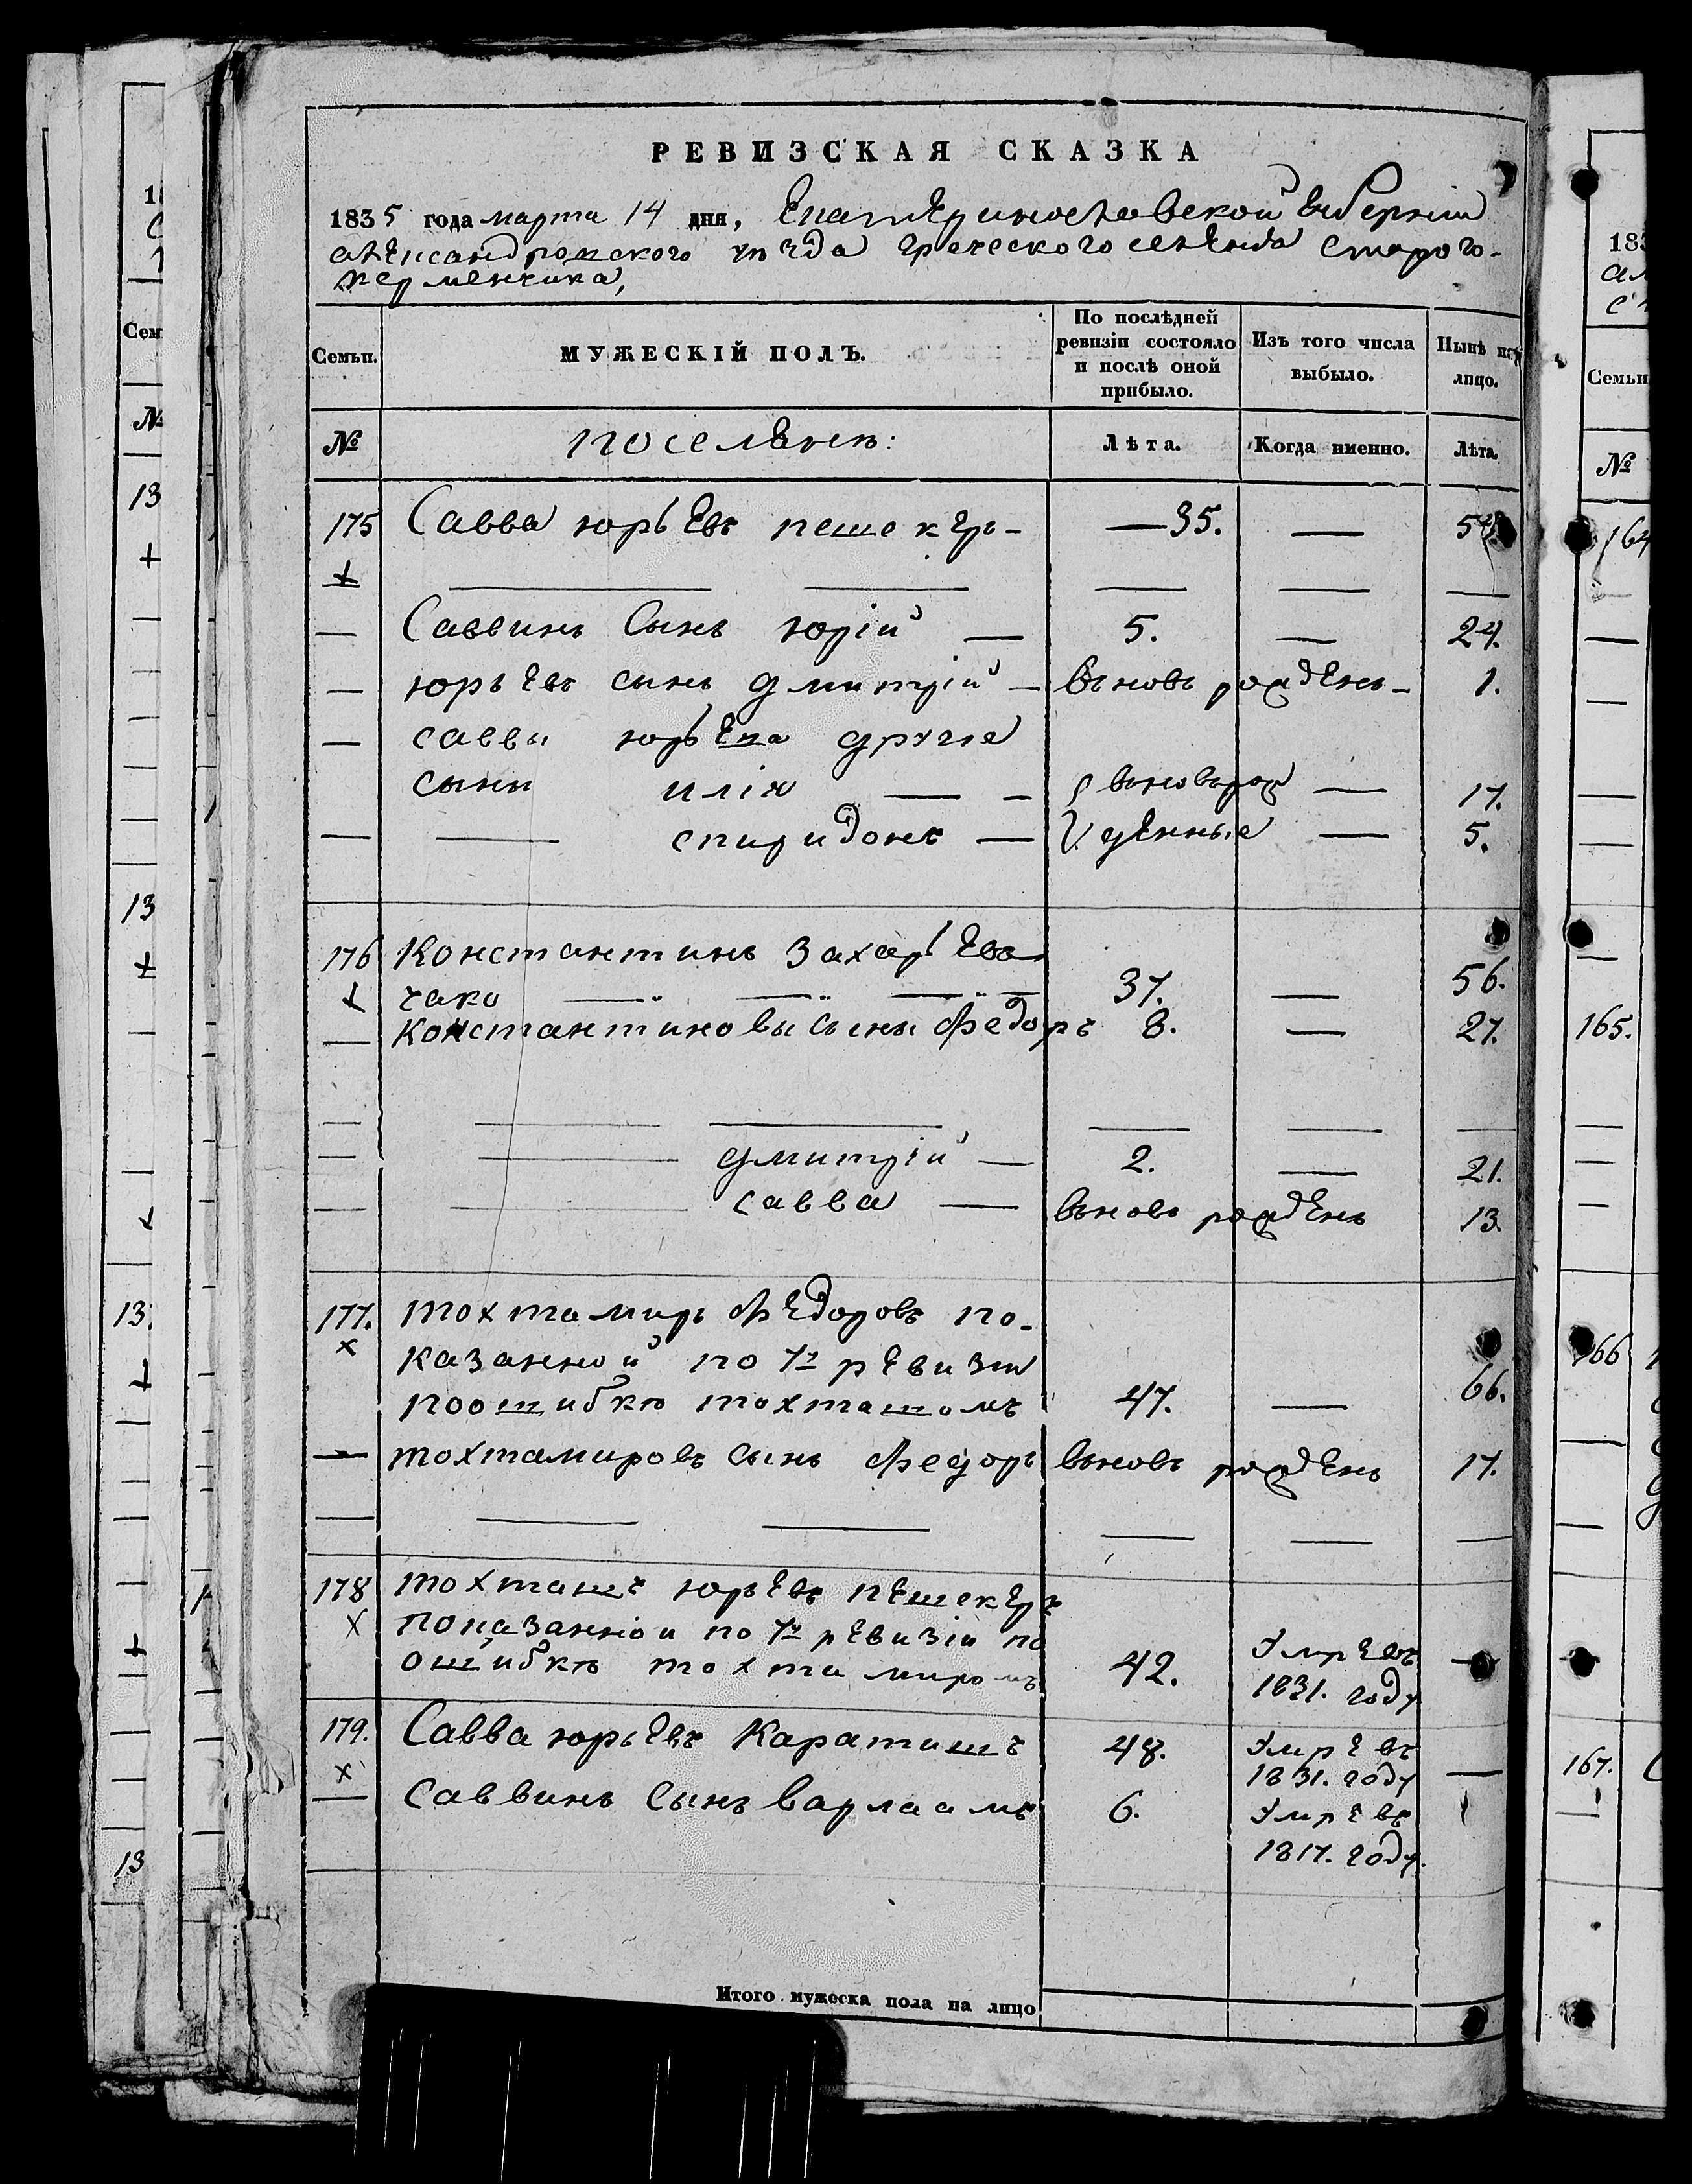 РЕВИЗСКАЯ СКАЗКА
1835 года марта 14 дня, Екатеринославской Губернии
александровского уѣзда греческого селенія старого-
керменчика,
Семьи.
МУЖЕСКІЙ ПОЛЪ.
По послѣдней ревизіи состояло и послѣ оной прибыло.
Изъ того числа выбыло.
Нынѣ на лицо.
№
поселяне:
Лѣта.
Когда именно.
Лѣта.
175 Савва юрьевъ пешекеръ - — 35. —
Саввинъ Сынъ юрій — 5. — 24.
— юрьевъ сынъ дмитрій — вновь рожденъ — 1.
— саввы юрьева другіе
сыны илія — вновь рож — 17.
— — спиридонъ — денные — 5.
176 Константинъ Захарьевъ
чако — 37. — 56.
— Константиновы Сыны Федоръ 8. — 27.
— — дмитрій — 2. — 21.
— — савва — вновь рожденъ 13.
177. тохтамиръ Федоровъ по-
казанной по 7й ревизіи
по ошибкѣ тохташомъ 47. — 66.
— тохтамировъ Сынъ Федоръ вновь рожденъ 17.
178 тохташъ юрьевъ пешекеръ
показанной по 7й ревизіи по
ошибкѣ тохтамиромъ 42. Умре въ 1831. году —
179. Савва юрьевъ Караташъ 48. Умре въ 1831. году —
— Саввинъ Сынъ варлаамъ 6. Умре въ 1817. году.
Итого мужеска пола на лицо
Сем
№
13
13
13.
13
183
Семьи
№
164
165.
166
167.